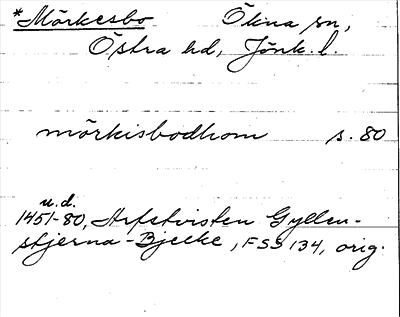 *Mörkesbo Ökna sn,
Östra hd, Jönk. l.
mörkisbodhom s. 80
u.d.
1451-80, Arfstvisten Gyllen-
stjerna-Bjelke, FSS 134, orig.